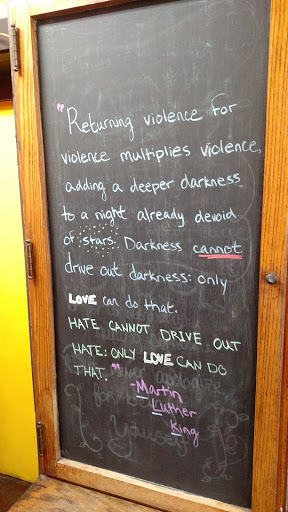 "Returning violence for
violence multiplies violence,
adding a deeper darkness
to a night already devoid
of stars. Darkness cannot
drive out darkness: only
LOVE can do that.
HATE CANNOT DRIVE OUT
HATE: ONLY LOVE CAN DO
THAT."
-Martin
Luther
King